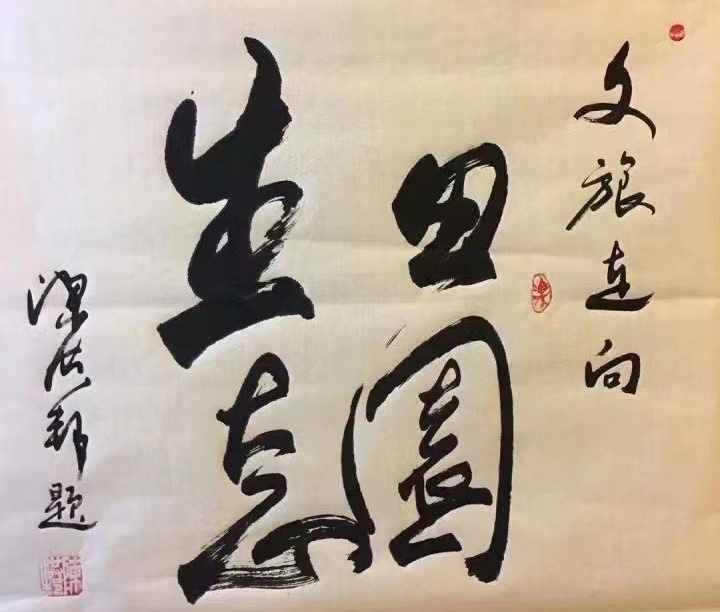 文旅连向
田園
生态
题